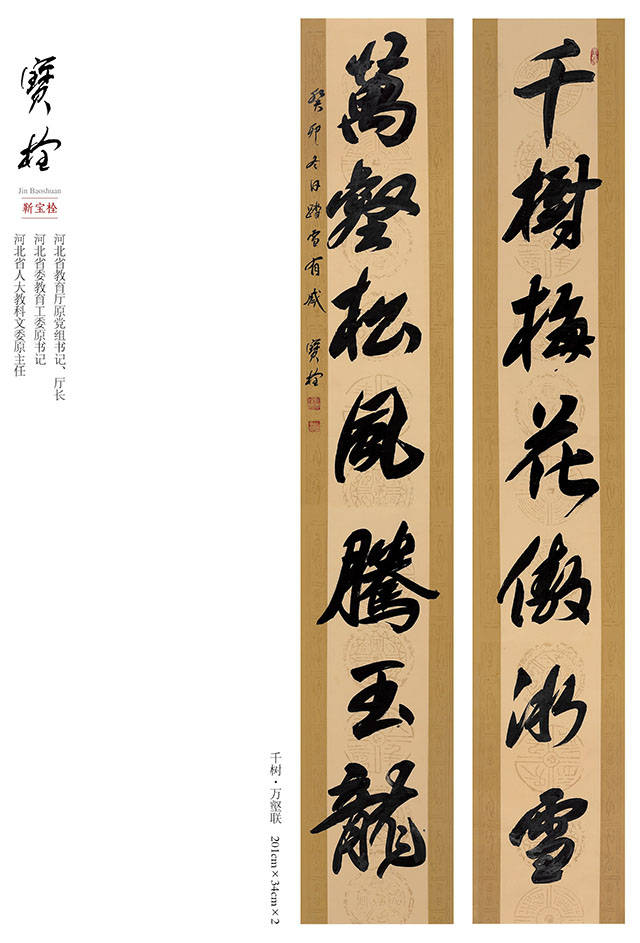 千樹梅花傲冰雪
萬壑松風騰玉龍
癸卯冬日踏雪有感 寶栓
寶栓
Jin Baoshuan
靳宝栓
河北省教育厅原党组书记、厅长
河北省委教育工委原书记
河北省人大教科文委原主任
千树·万壑联 201cm×34cm×2